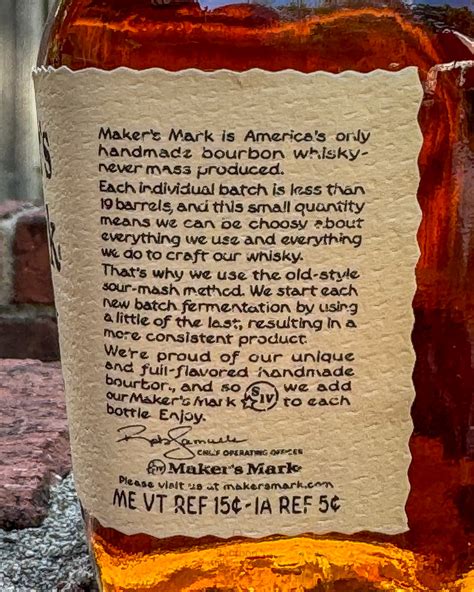 Maker's Mark is America's only
handmade bourbon whisky-
never mass produced.
Each individual batch is less than
19 barrels, and this small quantity
means we can be choosy about
everything we use and everything
we do to craft our whisky.
That's why we use the old-style
sour-mash method. We start each
new batch fermentation by using
a little of the last, resulting in a
more consistent product.
We're proud of our unique
and full-flavored handmade
bourbon, and so S IV we add
our Maker's Mark to each
bottle. Enjoy.
Rob Samuels
CHIEF OPERATING OFFICER
S IV Maker's Mark
Please visit us at makersmark.com
ME VT REF 15¢-IA REF 5¢